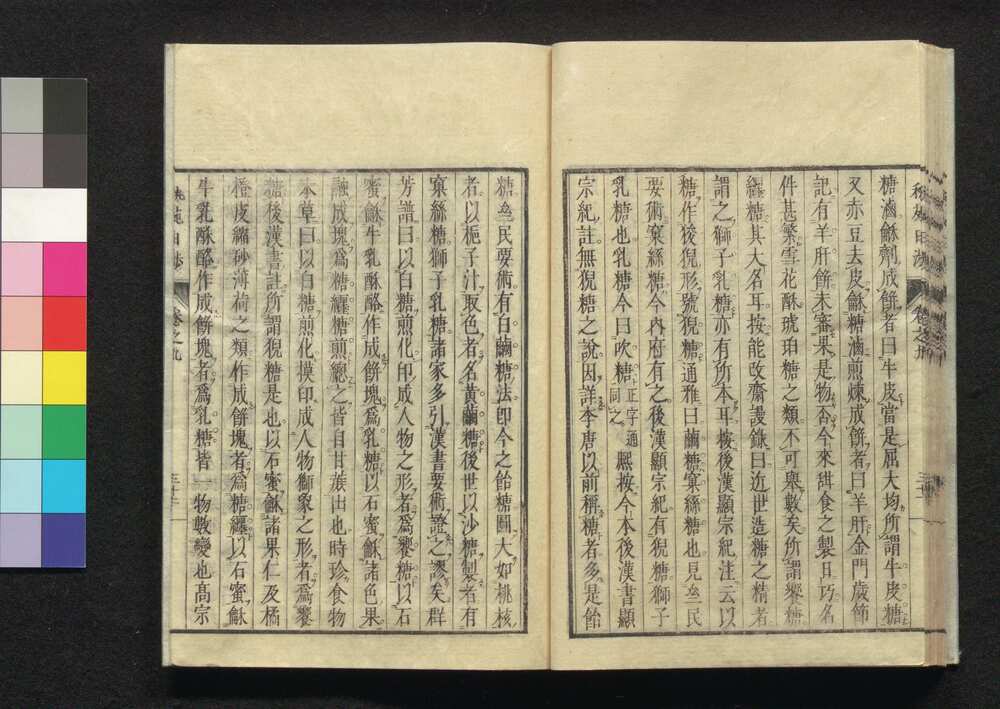 糖滷龢劑成餅者曰牛皮當是屈大均所謂牛皮糖
又赤豆去皮龢糖滷煎煉成餅者曰羊肝金門歲節
記有羊肝餅未審果是物否今來甜食之製日巧名
件甚繁雪花酥琥珀糖之類不可舉數矣所謂饗糖
纏糖其大名耳按能改齋謾錄曰近世造糖之精者
謂之獅子乳糖亦有所本耳按後漢顯宗紀注云以
糖作狻猊形號猊糖通雅曰繭糖窠絲糖也見齊民
要術窠絲糖今內府有之後漢顯宗紀有猊糖獅子
乳糖也乳糖今曰吹糖正字通同之熙按今本後漢書顯
宗紀註無猊糖之說因詳李唐以前稱糖者多是飴
糖齊民要術有白繭糖法卽今之飴糖圓大如桃核
者以梔子汁取色者名黃繭糖後世以沙糖製者有
窠絲糖獅子乳糖諸家多引漢書要術證之謬矣群
芳譜曰以白糖煎化印成人物之形者爲饗糖以石
蜜龢牛乳酥酪作成餅塊爲乳糖以石蜜龢諸色果
融成塊爲糖纏糖煎總之皆自甘蔗出也時珍食物
本草曰以白糖煎化摸印成人物獅象之形者爲饗
糖後漢書註所謂猊糖是也以石蜜龢諸果仁及橘
橙皮縮砂薄荷之類作成餅塊者爲糖纏以石蜜龢
牛乳酥酪作成餅塊者爲乳糖皆一物數變也高宗
卷之九
三十